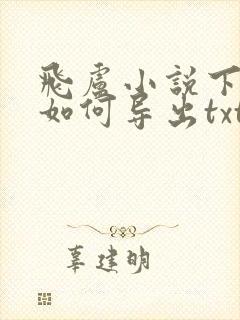 飛盧小說下
如何导出txt
辜建明